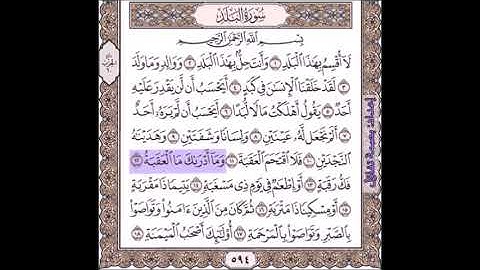 سُورَةُ البَلَدِ
بِسْمِ اللَّهِ الرَّحْمَٰنِ الرَّحِيمِ
لَآ أُقْسِمُ بِهَٰذَا ٱلْبَلَدِ ١ وَأَنتَ حِلٌّۢ بِهَٰذَا ٱلْبَلَدِ ٢ وَوَالِدٍ وَمَا وَلَدَ
٣ لَقَدْ خَلَقْنَا ٱلْإِنسَٰنَ فِى كَبَدٍ ٤ أَيَحْسَبُ أَن لَّن يَقْدِرَ عَلَيْهِ
أَحَدٌ ٥ يَقُولُ أَهْلَكْتُ مَالًا لُّبَدًا ٦ أَيَحْسَبُ أَن لَّمْ يَرَهُۥٓ أَحَدٌ
٧ أَلَمْ نَجْعَل لَّهُۥ عَيْنَيْنِ ٨ وَلِسَانًا وَشَفَتَيْنِ ٩ وَهَدَيْنَٰهُ
ٱلنَّجْدَيْنِ ١٠ فَلَا ٱقْتَحَمَ ٱلْعَقَبَةَ ١١ وَمَآ أَدْرَىٰكَ مَا ٱلْعَقَبَةُ ١٢
فَكُّ رَقَبَةٍ ١٣ أَوْ إِطْعَٰمٌ فِى يَوْمٍ ذِى مَسْغَبَةٍ ١٤ يَتِيمًا ذَا مَقْرَبَةٍ
١٥ أَوْ مِسْكِينًا ذَا مَتْرَبَةٍ ١٦ ثُمَّ كَانَ مِنَ ٱلَّذِينَ ءَامَنُوا۟ وَتَوَاصَوْا۟
بِٱلصَّبْرِ وَتَوَاصَوْا۟ بِٱلْمَرْحَمَةِ ١٧ أُو۟لَٰٓئِكَ أَصْحَٰبُ ٱلْمَيْمَنَةِ ١٨
٥٩٤